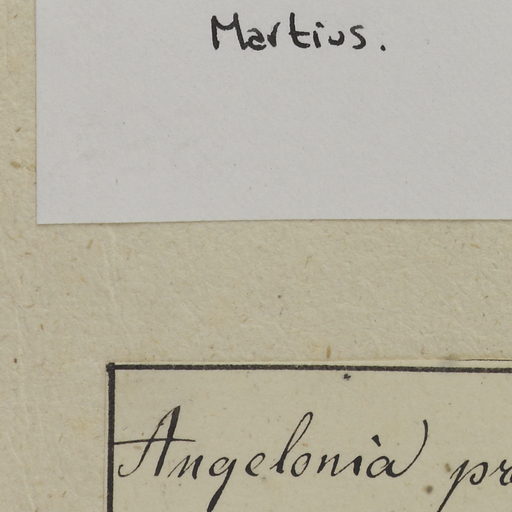 Martius.
Angelonia pr